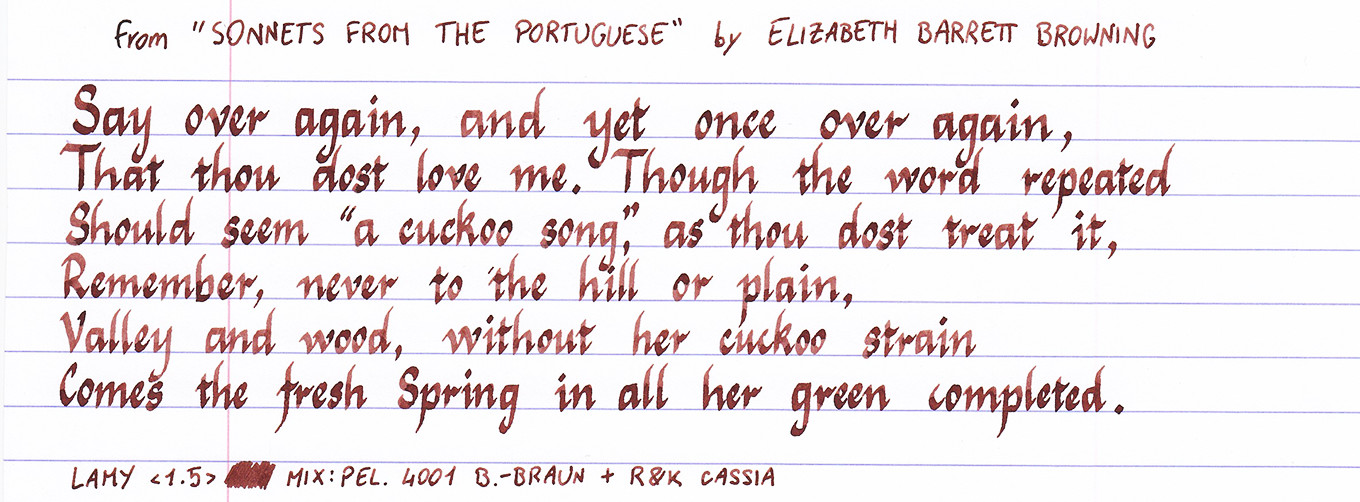 from "SONNETS FROM THE PORTUGUESE" by ELIZABETH BARRETT BROWNING
Say over again, and yet once over again,
That thou dost love me. Though the word repeated
Should seem "a cuckoo song", as thou dost treat it,
Remember, never to the hill or plain,
Valley and wood, without her cuckoo strain
Comes the fresh Spring in all her green completed.
LAMY <1.5> MIX: PEL. 4001 B.-BRAUN + R&K CASSIA